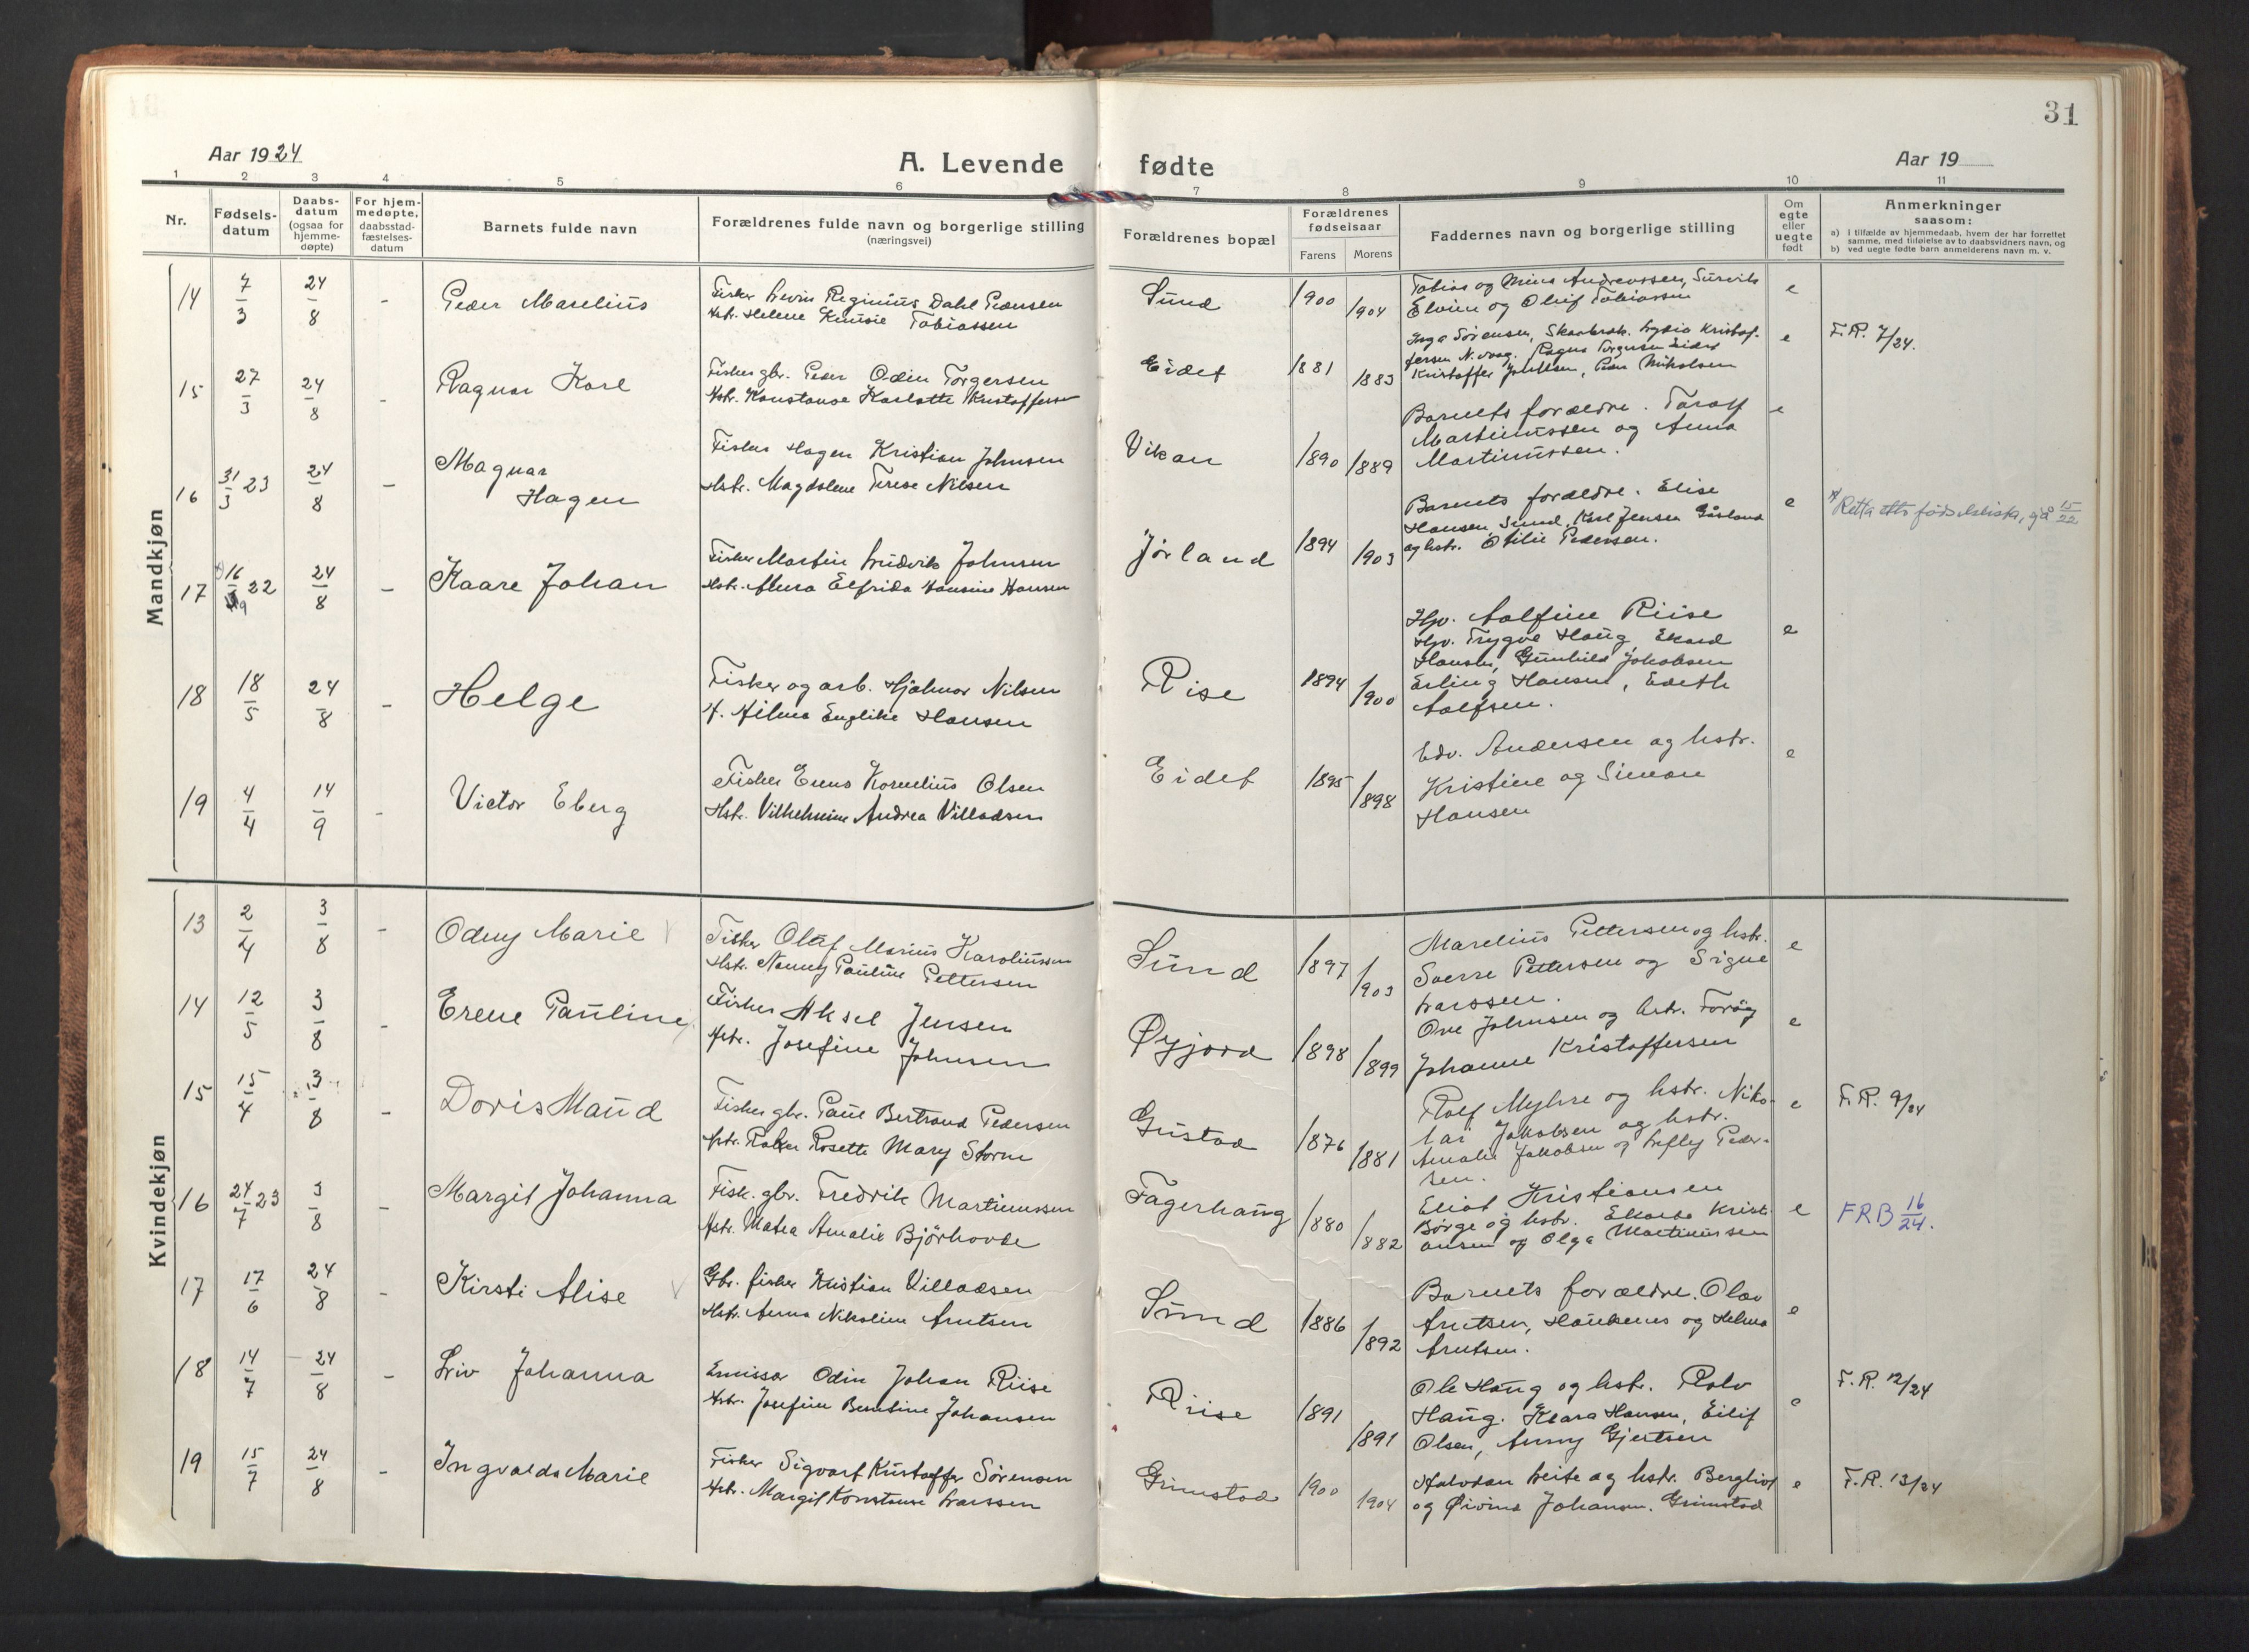 31
Aar 1924
A. Levende
fødte
Aar 19
1 2 3 4 5 6 7 8 9 10 11
Nr.
Fødsels-
datum
Daabs-
datum
(ogsaa for
hjemme-
døpte)
For hjem-
medøpte,
daabsstad-
fæstelses-
datum
Barnets fulde navn
Forældrenes fulde navn og borgerlige stilling
(næringsvei)
Forældrenes bopæl
Forældrenes
fødselsaar
Farens
Morens
Faddernes navn og borgerlige stilling
Om
egte
eller
uegte
født
Anmerkninger
saasom:
a) i tilfælde av hjemmedaab, hvem der har forrettet
samme, med tilføielse av to daabsvidners navn, og
b) ved uegte fødte barn anmelderens navn m. v.
Mandkjøn
14 7/3 24/8 - Peder Marelius
Fisker Levin Reginius Dahl Pedersen
Hstr. Helene Tobiassen
Sund 1900 1904
Tobias og Mina Andreassen, Sürvik
Elvine og Oluf Tobiassen
e
15 27/3 24/8 - Ragnar Karl
Fisker gbr. Peder Odin Torgersen
Hstr. Konstanse Karlotte Kristoffersen
Eidet 1881 1883
Inga Sørensen, Skarbrak. Lydia Kristof-
fersen N. vaag. Ragna Torgersen Eidet
Kristoffer Peder Nikolsen
e F.R. 7/24.
16 31/3 23 24/8 - Magnar
Hagen
Fisker Hagen Kristian Johnsen
Hstr. Magdalene Terese Nilsen
Vikan 1890 1889
Barnets forældre. Toralf
Martinussen og Anna
Martinussen.
e
17 16/9 22 24/8 - Kaare Johan
Fisker Martin Ludvik Johnsen
Hstr. Alma Elfrida Hansine Hansen
Jørland 1894 1903
Barnets forældre. Elise
Hansen Sund. Karl Jensen Gåsland
og hstr. Otilie Pedersen.
e Retta etter fødselslista, sjå 15/22
18 18/5 24/8 - Helge
Fisker og arb. Hjalmar Nilsen
H. Hilma Englike Hansen
Rise 1894 1900
Hjv. Aalfine Riise
Hjv. Trygve Haug, Ekard
Hansen, Gunhild Jakobsen
Erling Hansen, Edeth
Aalfsen.
e
19 4/4 14/9 - Victor Eberg
Fisker Enus Kornelius Olsen
Hstr. Vilhelmine Andrea Villadsen
Eidet 1895 1898
Edv. Andersen og hstr.
Kristine og Simon
Hansen
e
Kvindekjøn
13 2/4 3/8 - Odny Marie
Fisker Olaf Marius Karoliussen
Hstr. Nanny Pauline Pettersen
Sund 1897 1903
Marelius Pettersen og hstr.
Sverre Pettersen og Signe
Larssen.
e
14 12/5 3/8 - Erene Pauline
Fisker Aksel Jensen
Hstr. Josefine Johnsen
Øyjord 1898 1899
Ove Johnsen og hstr. Torøy
Johanne Kristoffersen
e
15 15/4 3/8 - Doris Maud
Fisker gbr. Paul Bertrand Pedersen
Hstr. Rosette Mary Storm
Grustad 1876 1881
Rolf Myhre og hstr. Niko-
lai Jakobsen og hstr.
Amalie Jakobsen og Lefley Peder-
sen.
e F.R. 9/24
16 24/7 23 3/8 - Margit Johanna
Fisk. gbr. Fredrik Martinussen
Hstr. Matea Amalie Bjørhovde
Fagerhaug 1880 1882
Eliot Kristiansen
Børge og hstr. Kristi-
ansen og Olga Martinussen
e FRB 16/24.
17 17/6 24/8 - Kirsti Alise
Gbr. fisker Kristian Villadsen
Hstr. Anna Nikoline Arntsen
Sund 1886 1892
Barnets forældre. Olav
Arntsen, Haukenes og Helma
Arntsen.
e
18 14/7 24/8 - Liv Johanna
Emissær Odin Johan Riise
Hstr. Josefine Berntine Johansen
Riise 1891 1891
Ole Haug og hstr. Rolv
Haug. Klara Hansen, Eilif
Olsen, Anny Gjertsen
e F.R. 12/24
19 15/7 24/8 - Ingvalda Marie
Fisker Sigvart Kristoffer Sørensen
Hstr. Margit Konstanse Larssen
Grimstad 1900 1904
Halvdan Leite og hstr. Bergliot
og Øivind Johansen. Grimstad
e F.R. 13/24